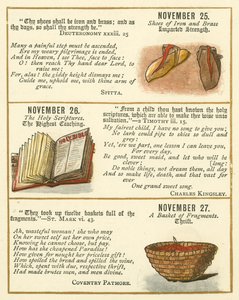 "Thy shoes shall be iron and brass; and as
thy days, so shall thy strength be."
DEUTERONOMY xxxiii. 25
Many a painful step must be ascended,
Ere my weary pilgrimage is ended,
And in Heaven, I see Thee, face to face:
O! then reach Thy hand dear Lord, to
raise me;
For, alas! the giddy height dismays me;
Guide me, uphold me, with thine arms of
grace.
SPITTA.
NOVEMBER 25.
Shoes of Iron and Brass
Imparted Strength.
NOVEMBER 26.
The Holy Scriptures.
The Highest Teaching.
"From a child thou hast known the holy
scriptures, which are able to make thee wise unto
salvation."—2 TIMOTHY iii. 15.
My fairest child, I have no song to give you;
No lark could pipe to skies so dull and
grey;
Yet, 'ere we part, one lesson I can leave you,
For every day.
Be good, sweet maid, and let who will be
clever;
Do noble things, not dream them, all day
long:
And so make life, death, and that vast for
ever
One grand sweet song.
CHARLES KINGSLEY.
"They took up twelve baskets full of the
fragments."—ST. MARK vi. 43.
Ah, wasteful woman! she who may
On her sweet self set her own price,
Knowing he cannot choose, but pay.
How has she cheapened Paradise!
How given for nought her priceless gift!
How spoiled the bread and spilled the wine,
Which, spent with due, respective thrift,
Had made brutes men, and men divine.
COVENTRY PATMORE.
NOVEMBER 27.
A Basket of Fragments.
Thrift.